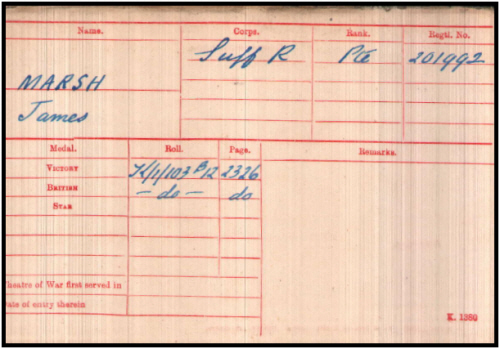 Name. Corps. Rank. Regtl. No.
Suff R Pte 201992
MARSH
James
Medal. Roll. Page. Remarks.
VICTORY K/1/103 B12 2326
BRITISH - do - do
STAR
Theatre of War first served in
Date of entry therein
K. 1380